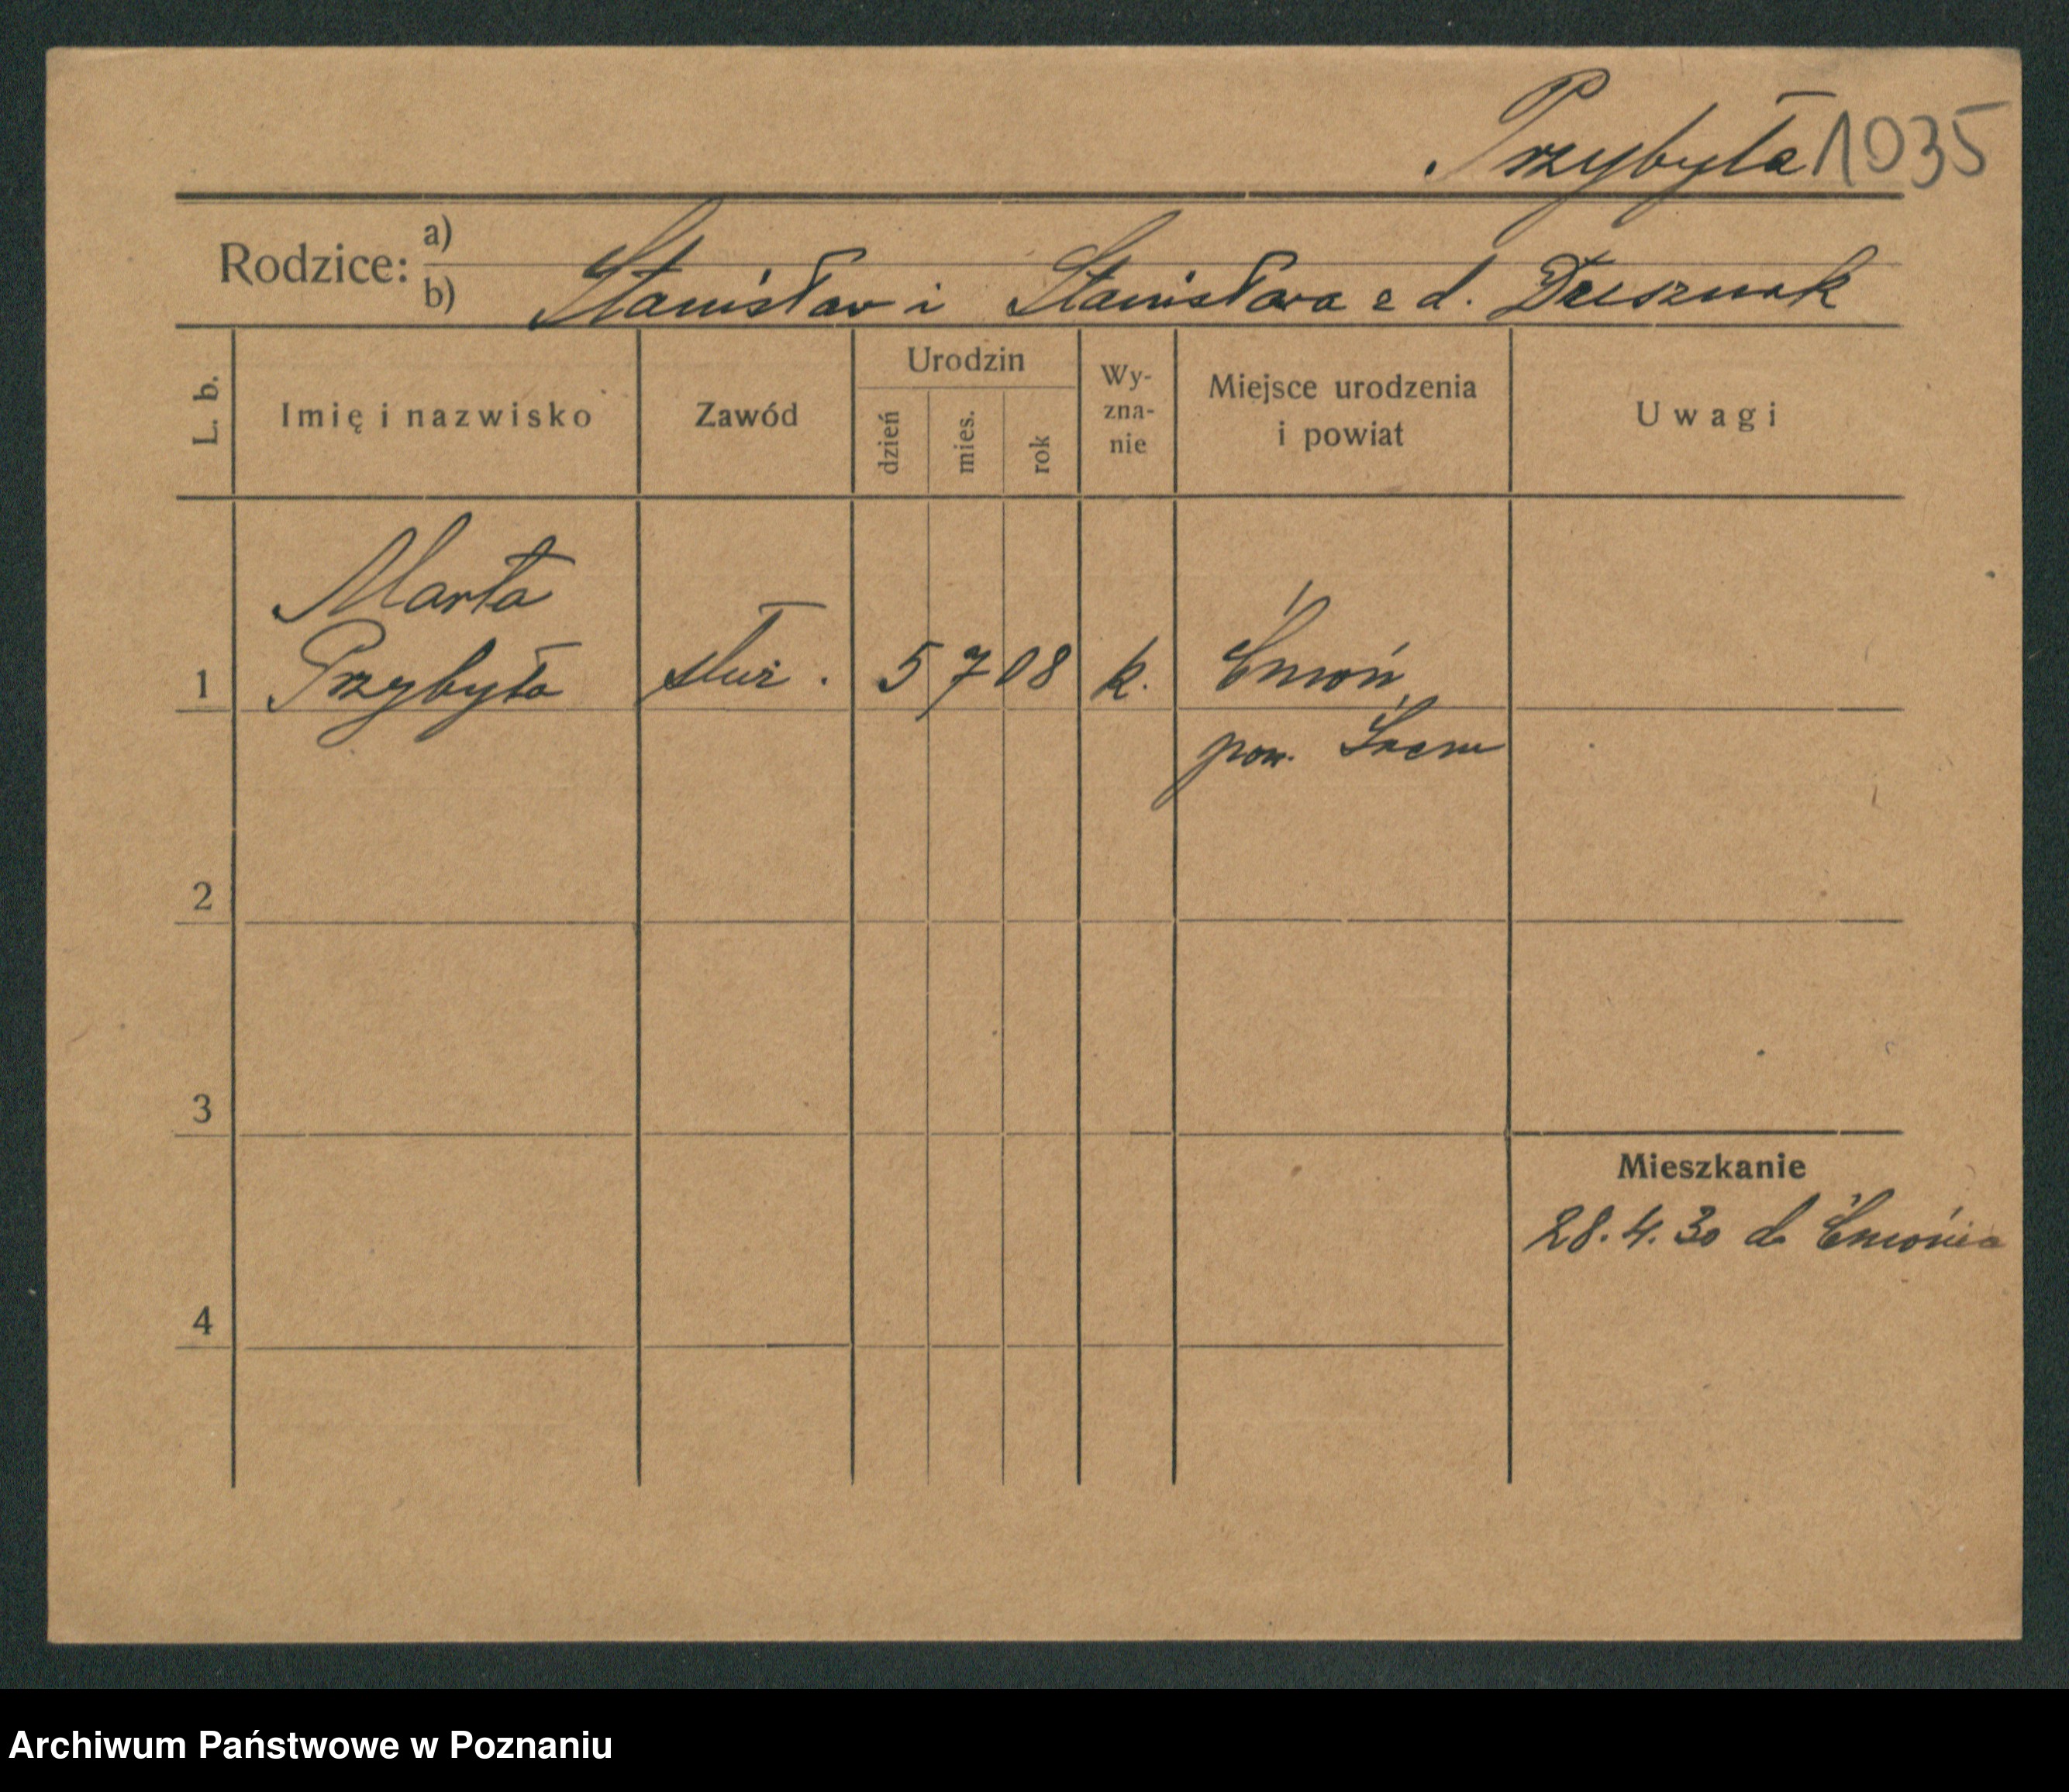 Przybyła 1035
Rodzice: a)
b) Stanisław i Stanisława z d.
L. b. Imię i nazwisko Zawód Urodzin dzień mies. rok Wy-zna-nie Miejsce urodzenia i powiat Uwagi
Marta
1 Przybyła służ. 5 7 08 k. Ćmoń
pow. Śrem
2
3
Mieszkanie
28.4.30 do Ćmońia
4
Archiwum Państwowe w Poznaniu